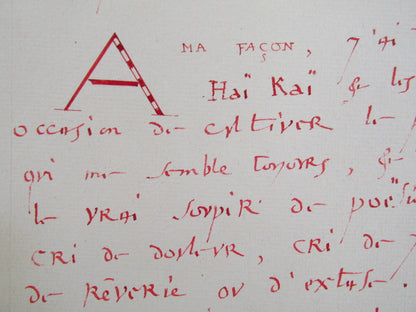 A MA FAÇON, J'AI
HAÏ KAÏ & les
occasion de cultiver le
qui me semble toujours, &
le vrai soupir de poësi
cri de douleur, cri de
de rêverie ou d'extase.